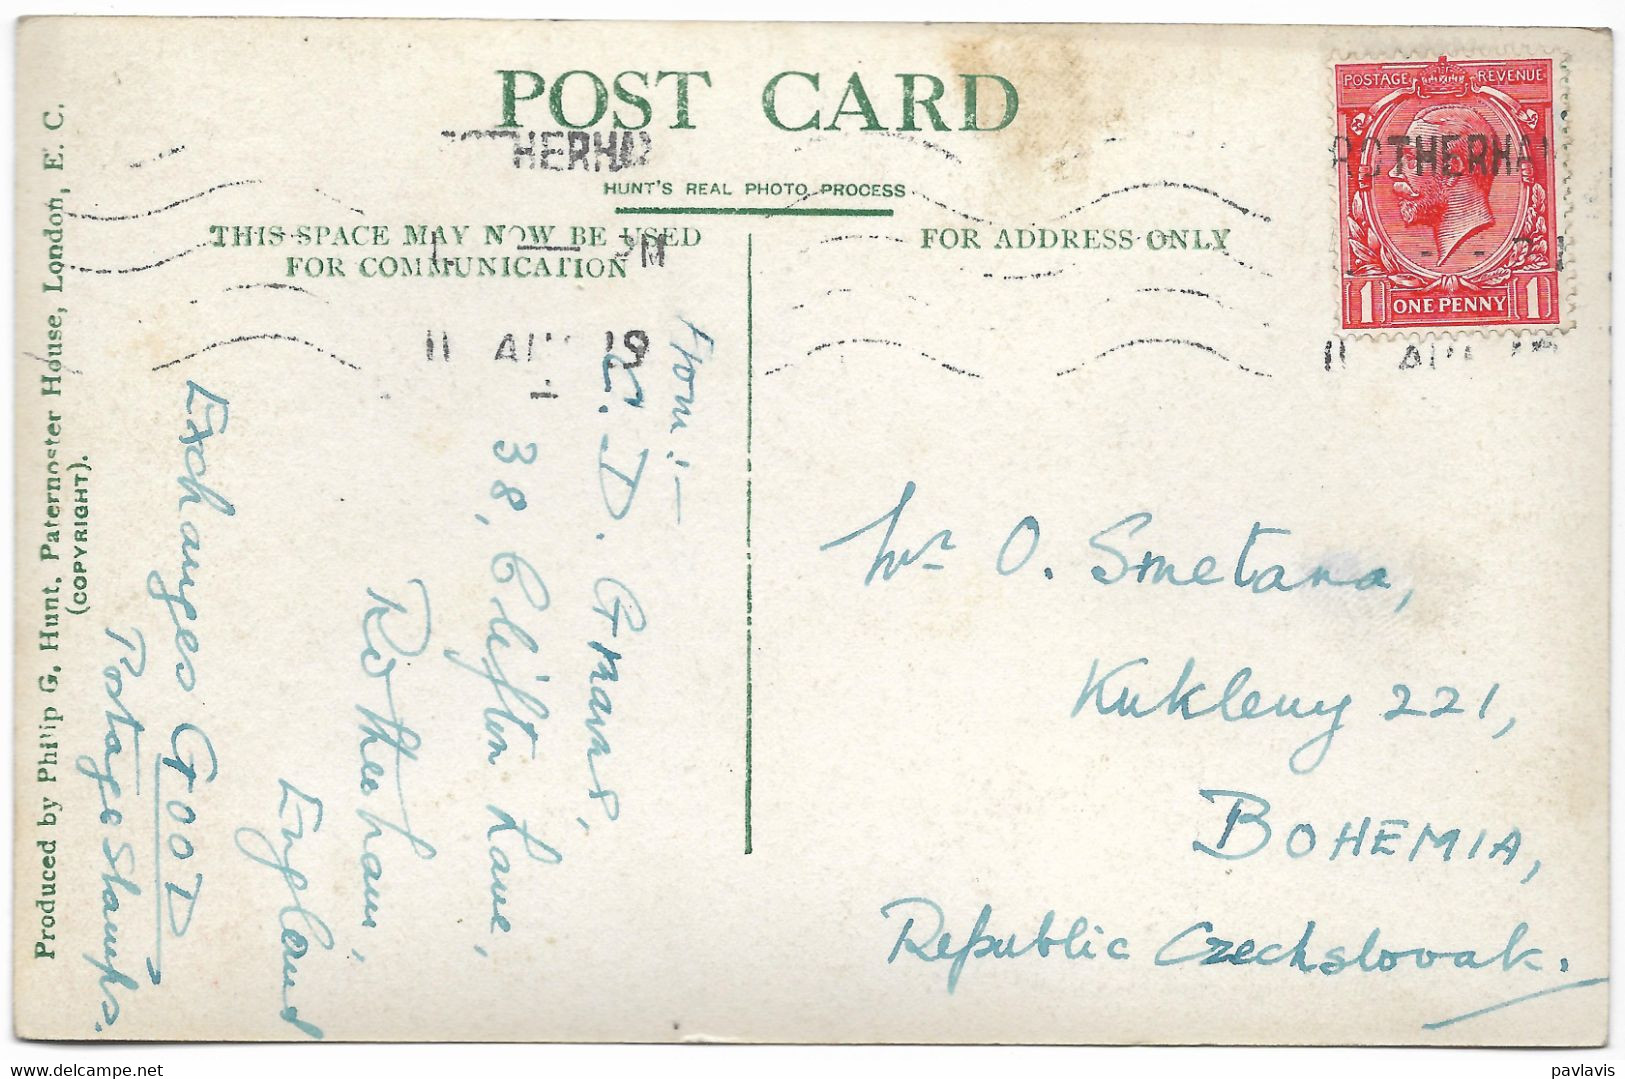 POST CARD
HUNT'S REAL PHOTO PROCESS
THIS SPACE MAY NOW BE USED
FOR COMMUNICATION
FOR ADDRESS ONLY
POSTAGE REVENUE
1 ONE PENNY 1
ROTHERHA
PM
11
19
Produced by Philip G. Hunt, Paternoster House, London, E. C.
(COPYRIGHT).
From :-
D.
38, Clifton Lane,
Rotherham,
England
Exchanges GOOD
Postage Stamps.
Mr O. Smetana,
Kukleny 221,
BOHEMIA,
Republic Czechslovak.
pavlavis
pavlavis